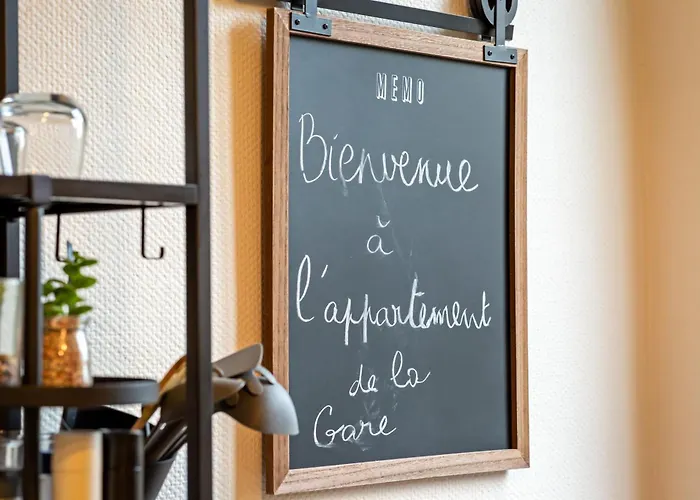 MEMO
Bienvenue
à
l'appartement
de la
Gare